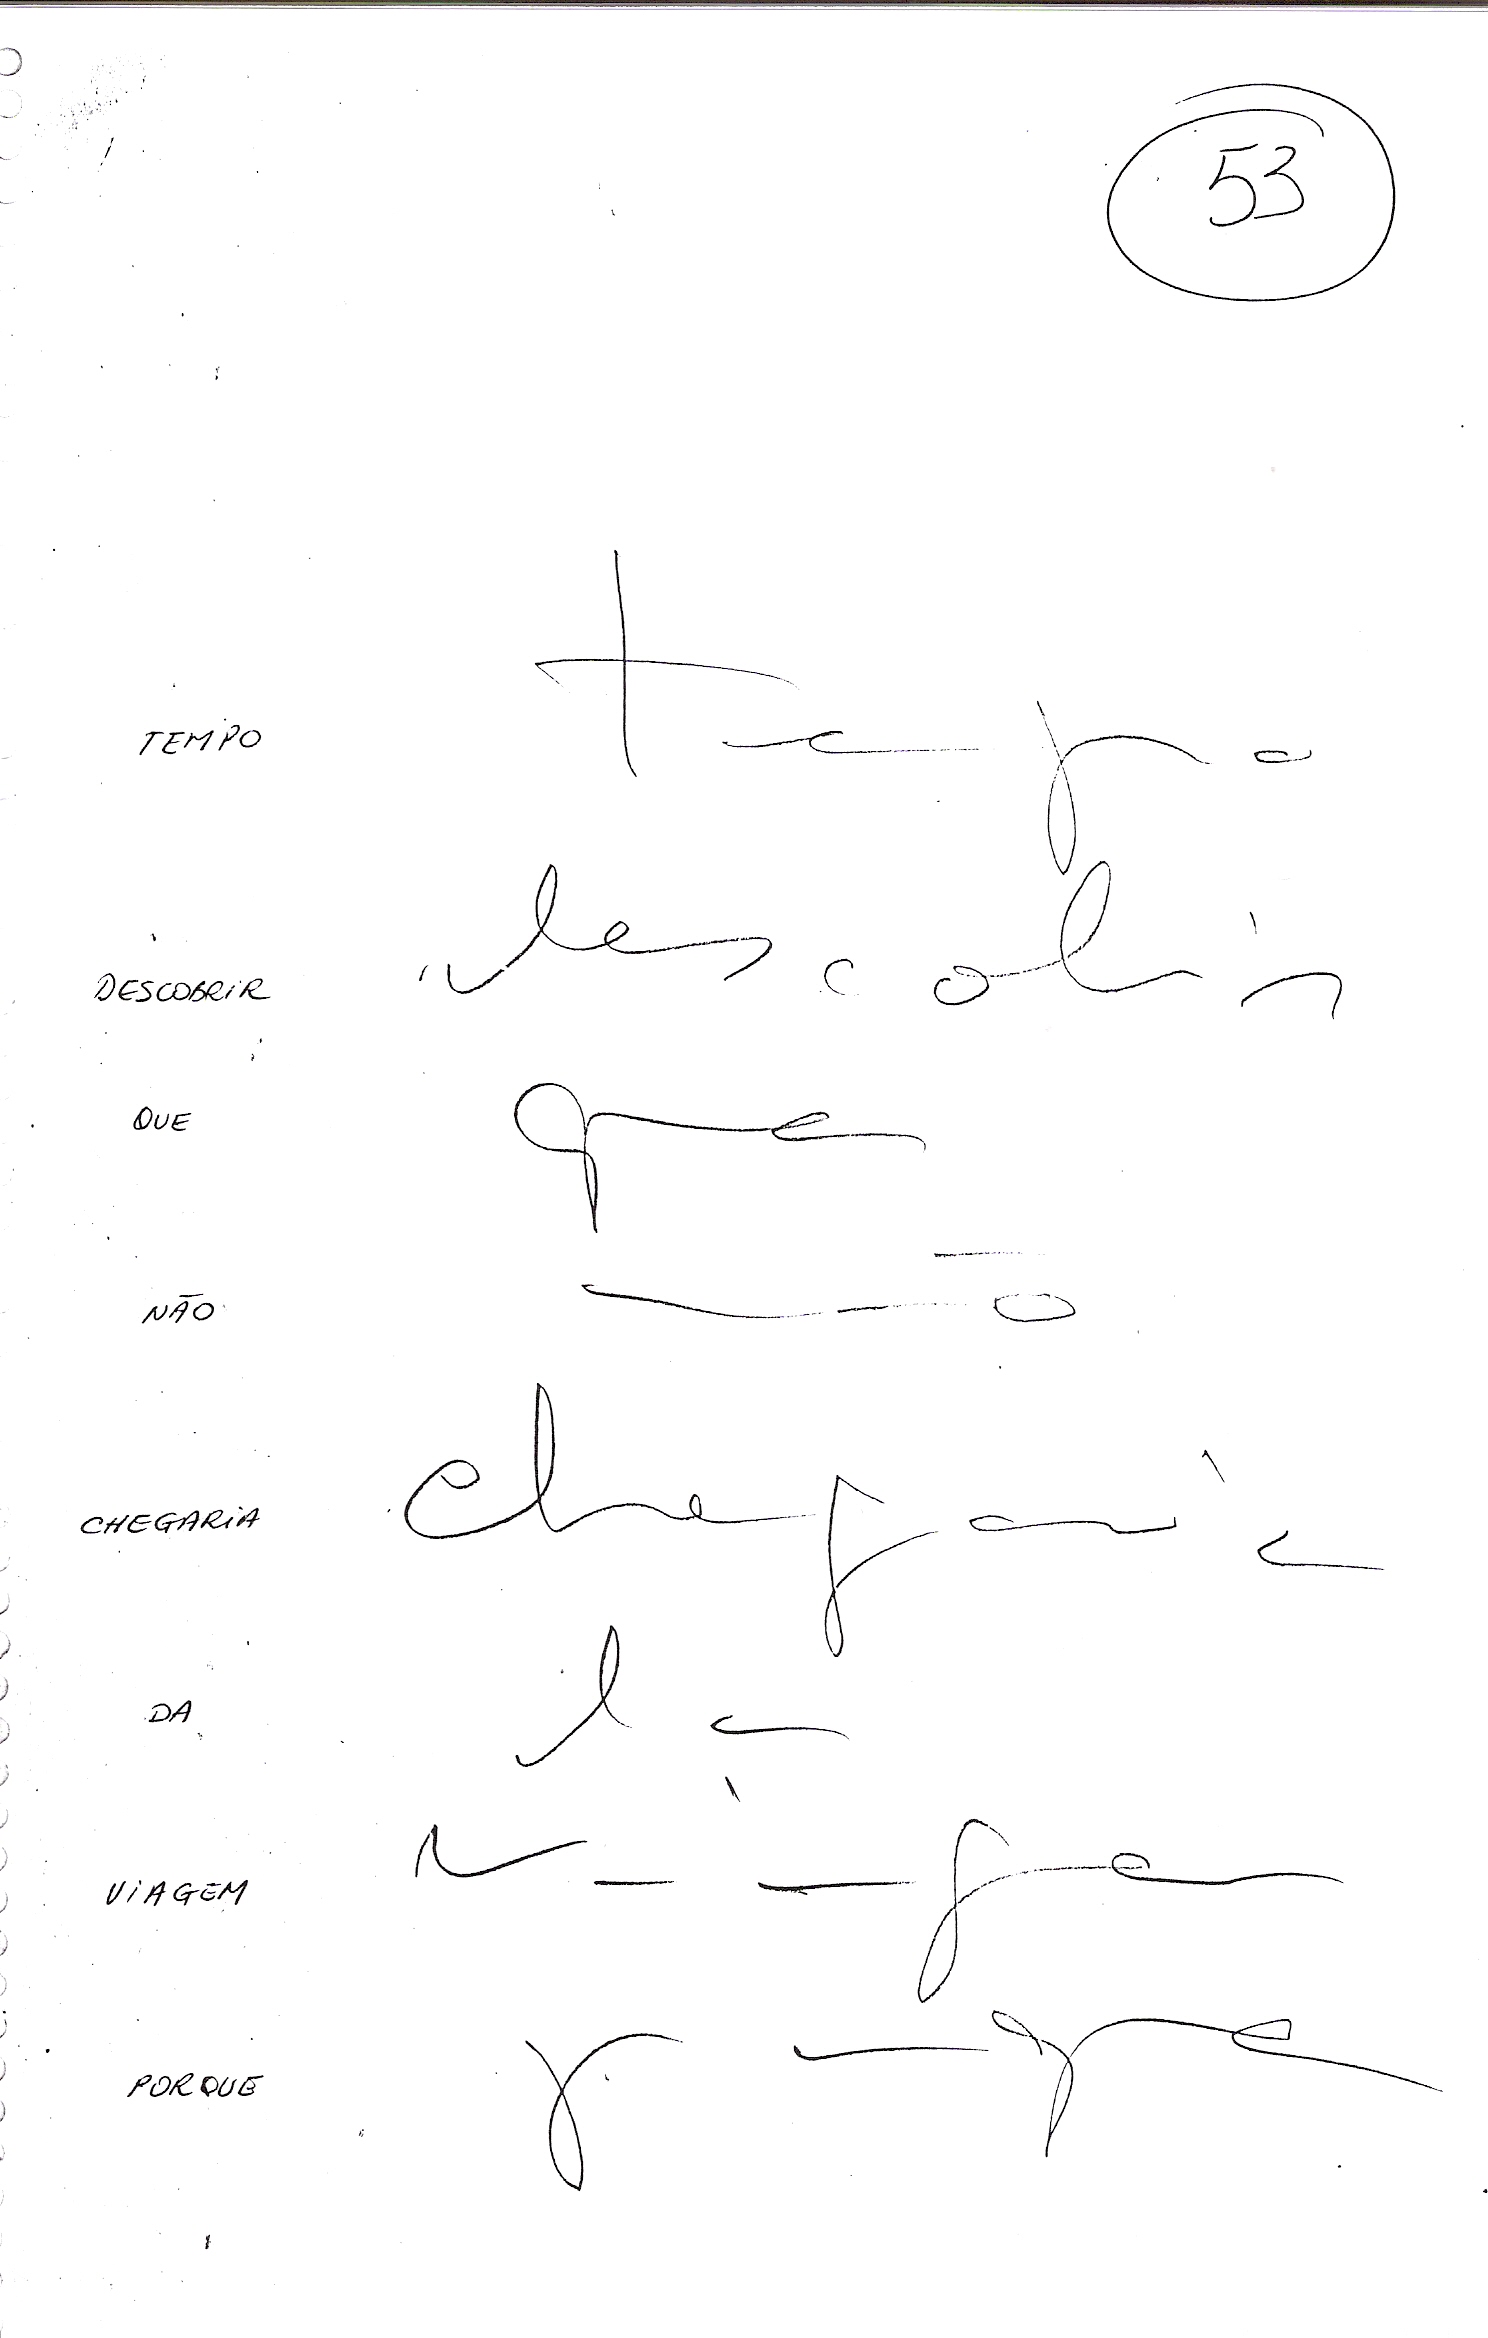 53
TEMPO tempo
DESCOBRIR descobrir
QUE que
NÃO não
CHEGARIA chegaria
DA da
VIAGEM viagem
PORQUE porque